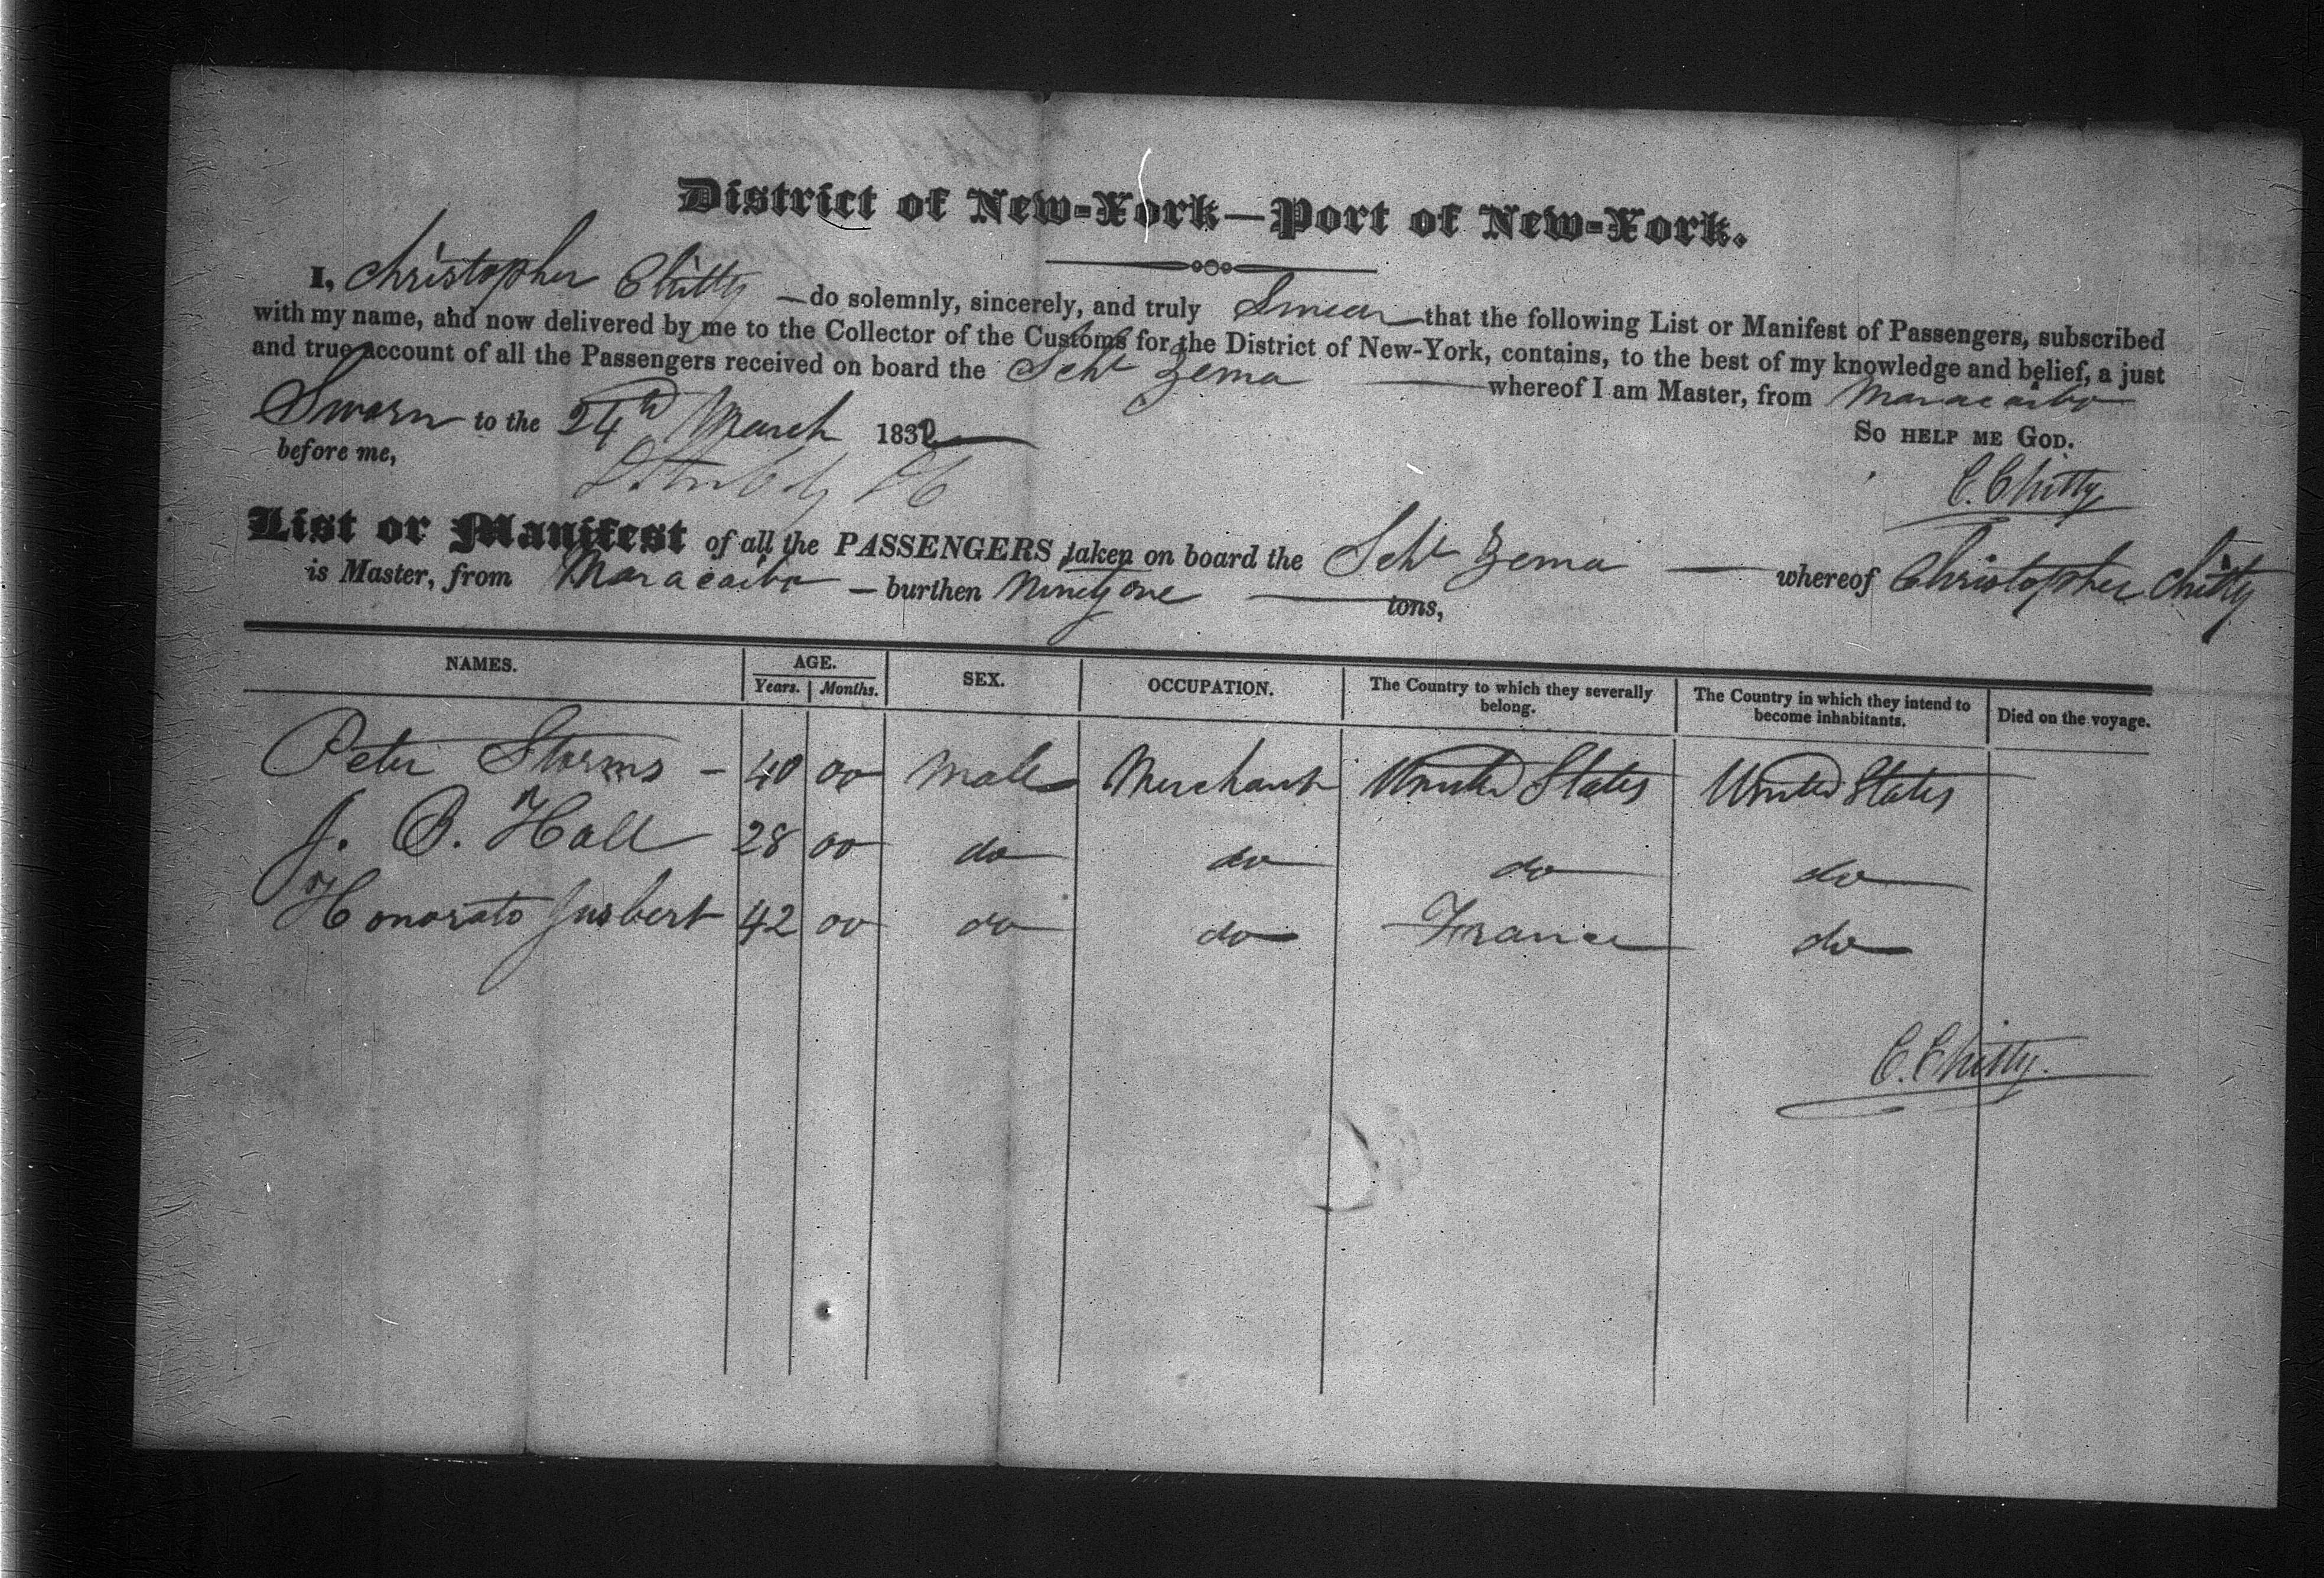 District of New-York—Port of New-York.
I, Christopher Chitty —do solemnly, sincerely, and truly Swear that the following List or Manifest of Passengers, subscribed
with my name, and now delivered by me to the Collector of the Customs for the District of New-York, contains, to the best of my knowledge and belief, a just
and true account of all the Passengers received on board the Schr Zema — whereof I am Master, from Maracaibo
Sworn to the 24th March 1832
So HELP ME GOD.
before me,
C. Chitty
List or Manifest of all the PASSENGERS taken on board the Schr Zema — whereof Christopher Chitty
is Master, from Maracaibo — burthen Ninety one — tons,
NAMES. AGE. SEX. OCCUPATION. The Country to which they severally belong. The Country in which they intend to become inhabitants. Died on the voyage.
Years. Months.
Peter Storms — 40 00 Male Merchant United States United States
J. B. Hall 28 00 do do do do
Honorato Jusbert 42 00 do do France do
C. Chitty.